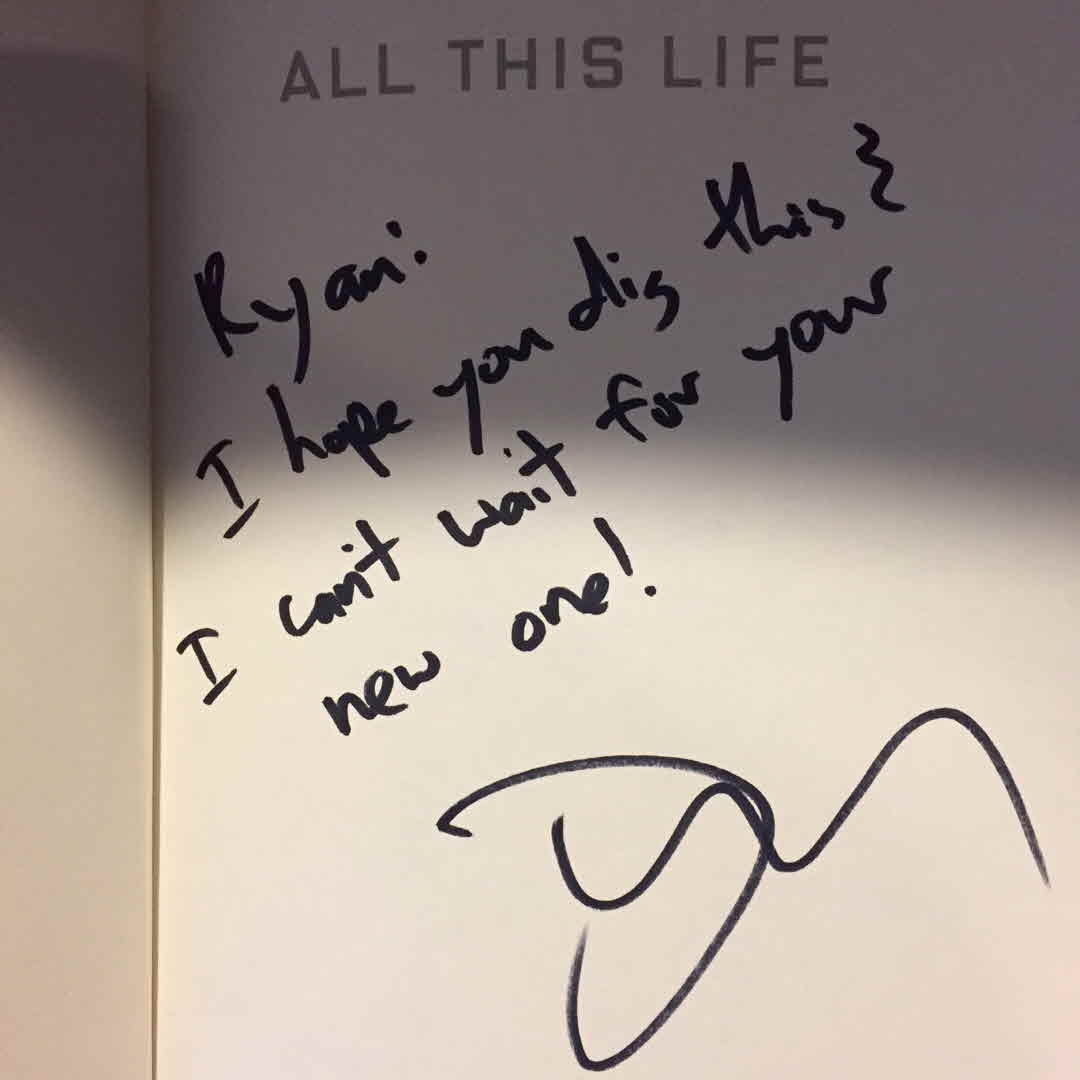 ALL THIS LIFE
Ryan:
I hope you dig this &
I can't wait for your
new one!